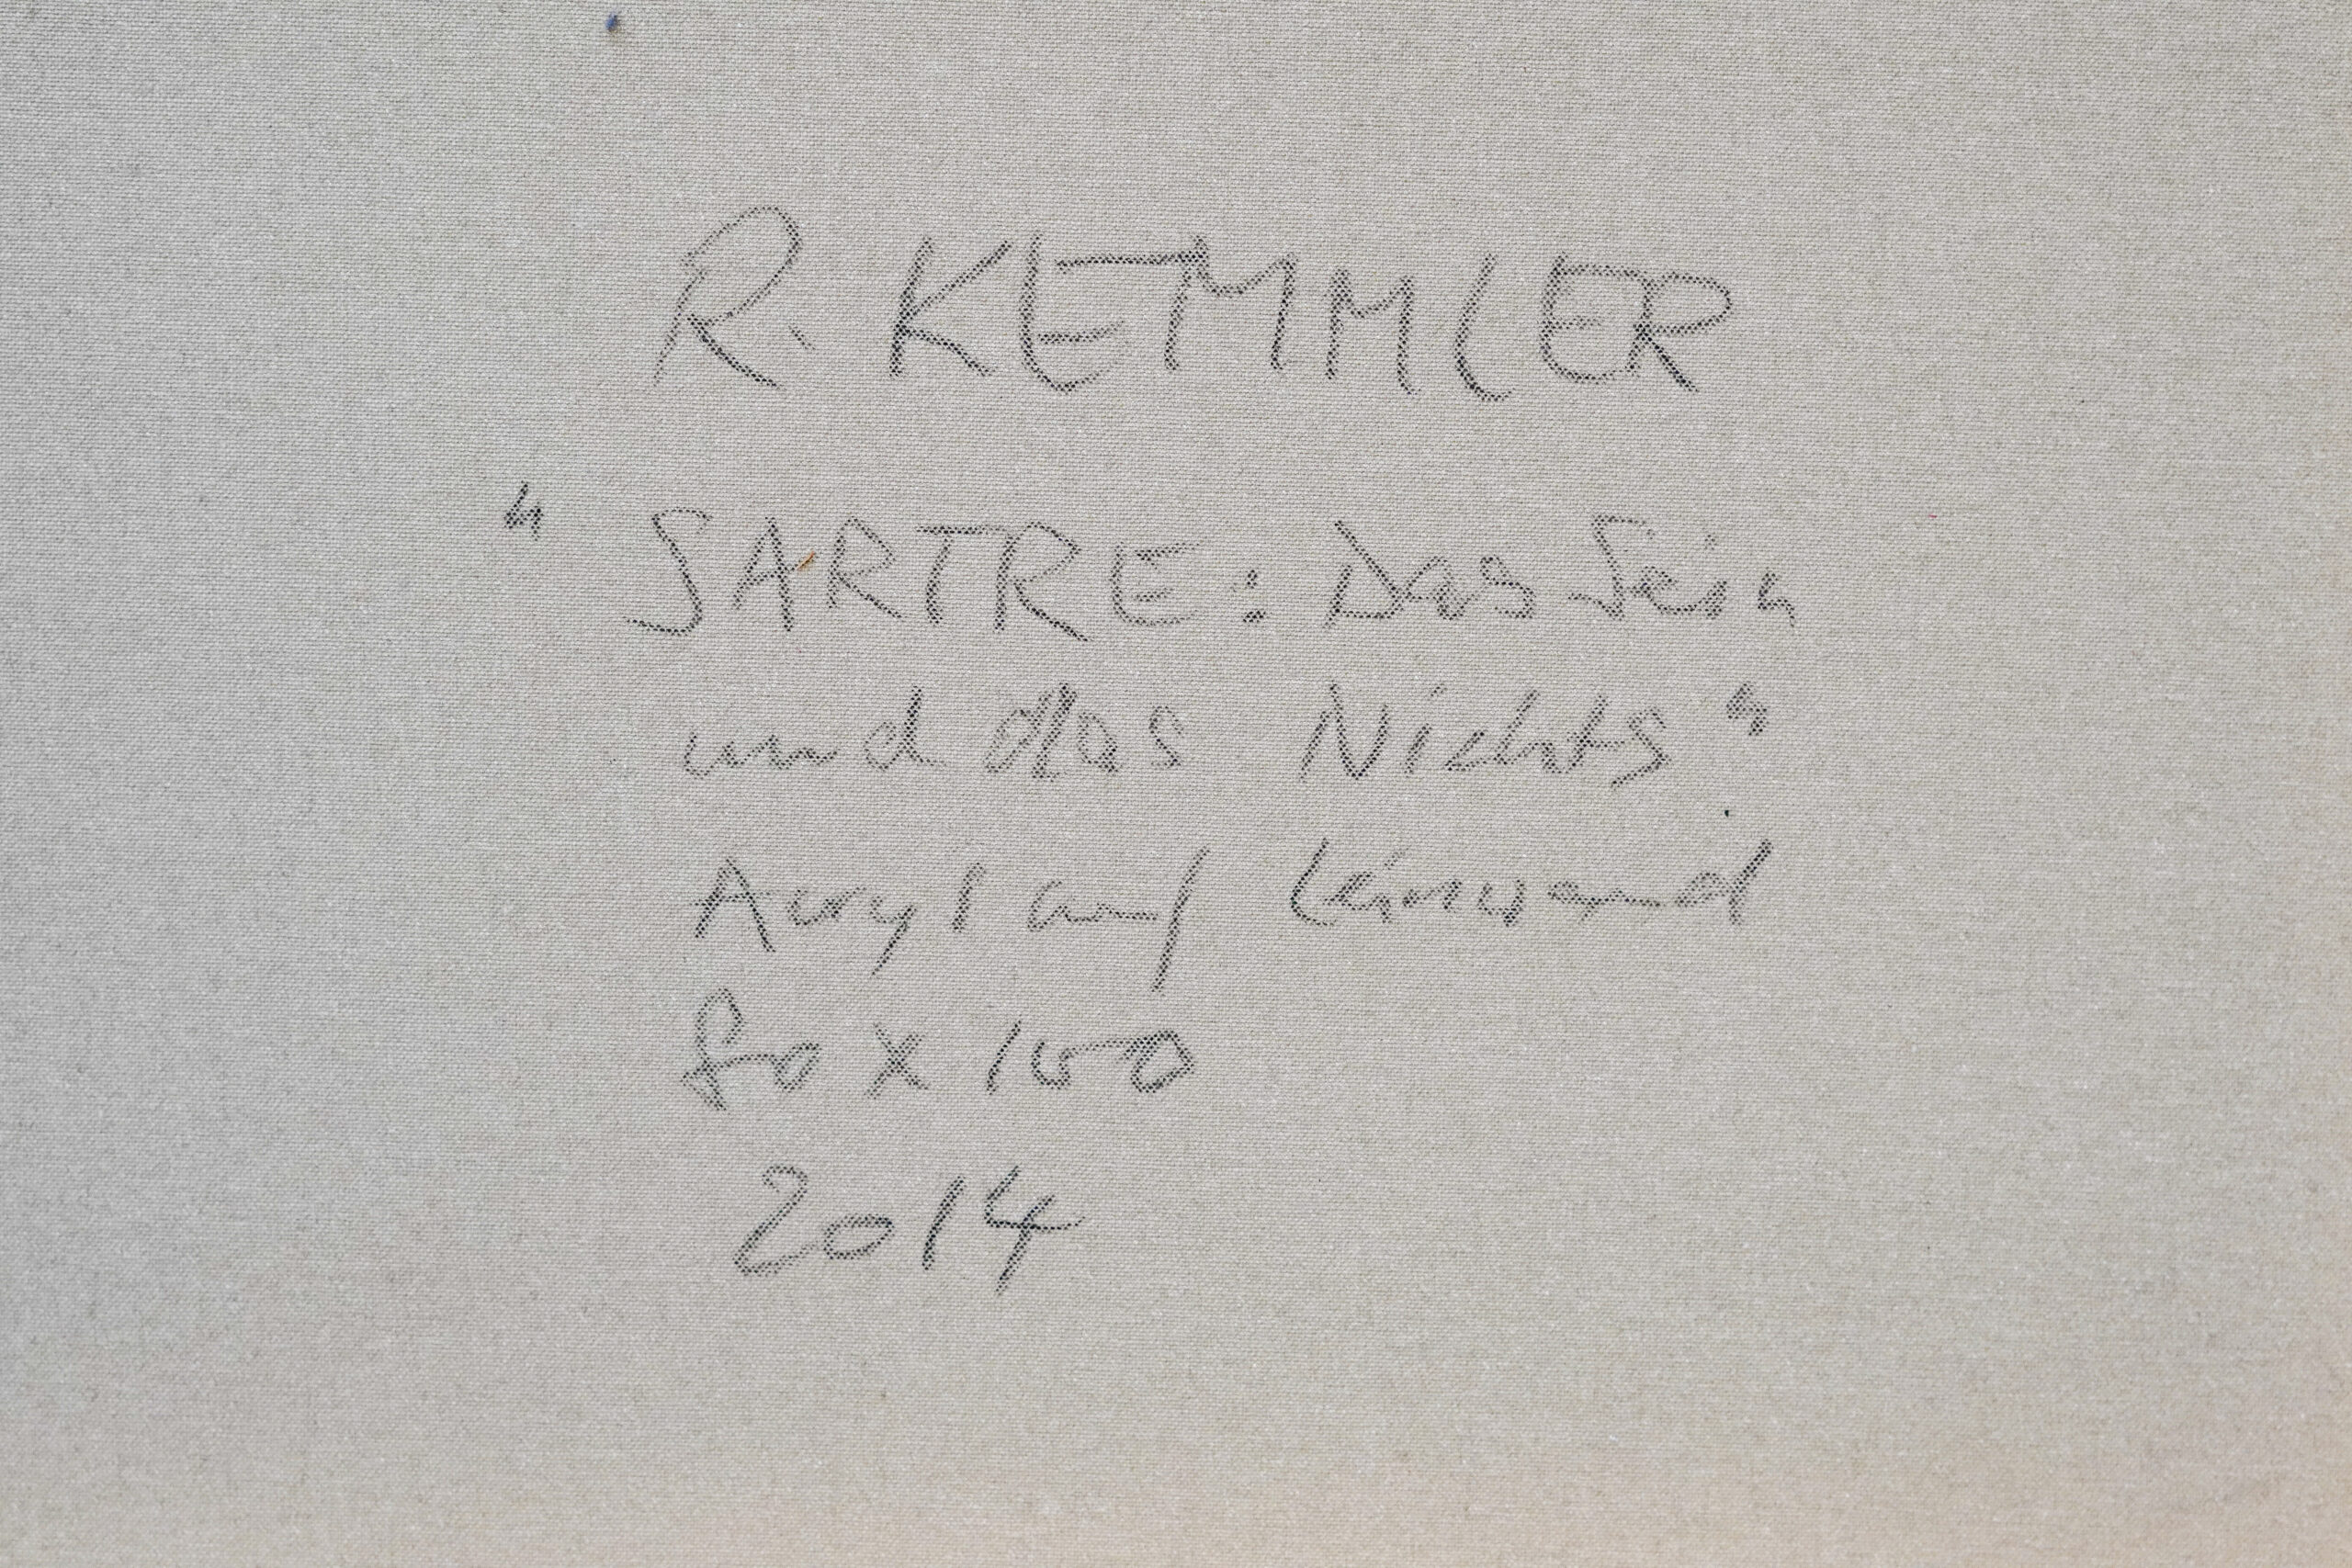 R. KEMMLER
"SARTRE: Das Sein
und das Nichts"
Acryl auf Leinwand
80 x 100
2014